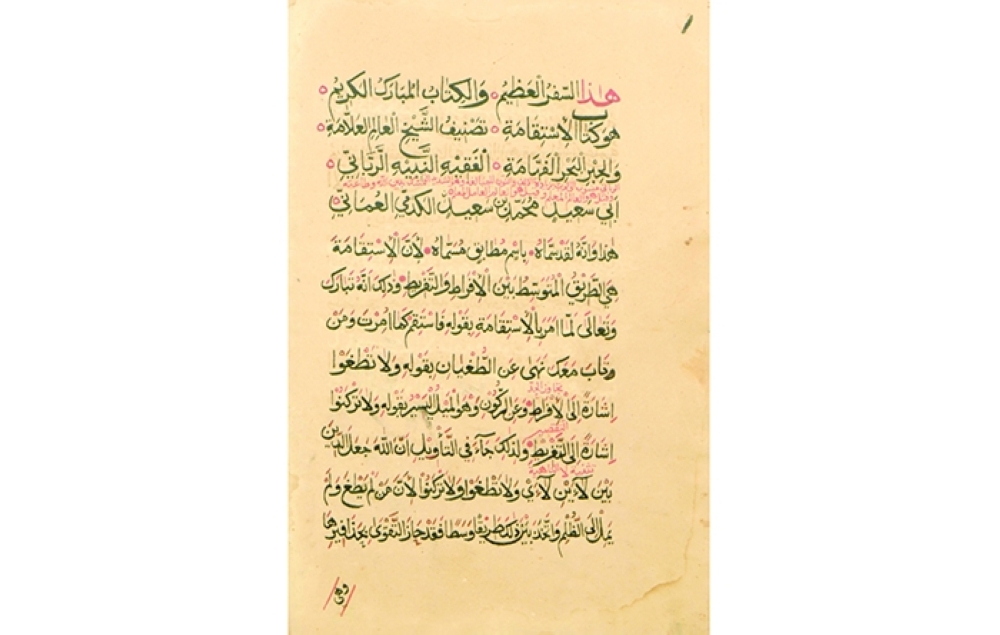 ١
هذا السفر العظيم ٥ والكتاب المبارك الكريم ٥
هو كتاب الاستقامة ٥ تصنيف الشيخ العالم العلامة ٥
والحبر البحر الفهامة ٥ الفقيه النبيه الرباني ٥
ابي سعيد محمد بن سعيد الكدمي العماني ٥
هذا وانه لقد سماه • باسم مطابق مسماه • لأن الاستقامة
هي الطريق المتوسط بين الافراط والتفريط • وذلك انه تبارك
وتعالى لما امر بالاستقامة بقوله فاستقم كما امرت ومن
وتاب معك نهى عن الطغيان بقوله ولا تطغوا
تجاوز الحد
اشارة الى الافراط • وعن الركون وهو الميل اليسير بقوله ولا تركنوا
التقصير
اشارة الى التفريط • ولذلك جآء في التأويل ان الله جعل الدين
تثنية لا الناهية
بين لآءين لآءي ولا تطغوا ولا تركنوا لأن من لم يطغ ولم
يمل الى الظلم واتخذ بين ذلك طريقا وسطا فقد حاز التقوى بحذافيرها
وهي